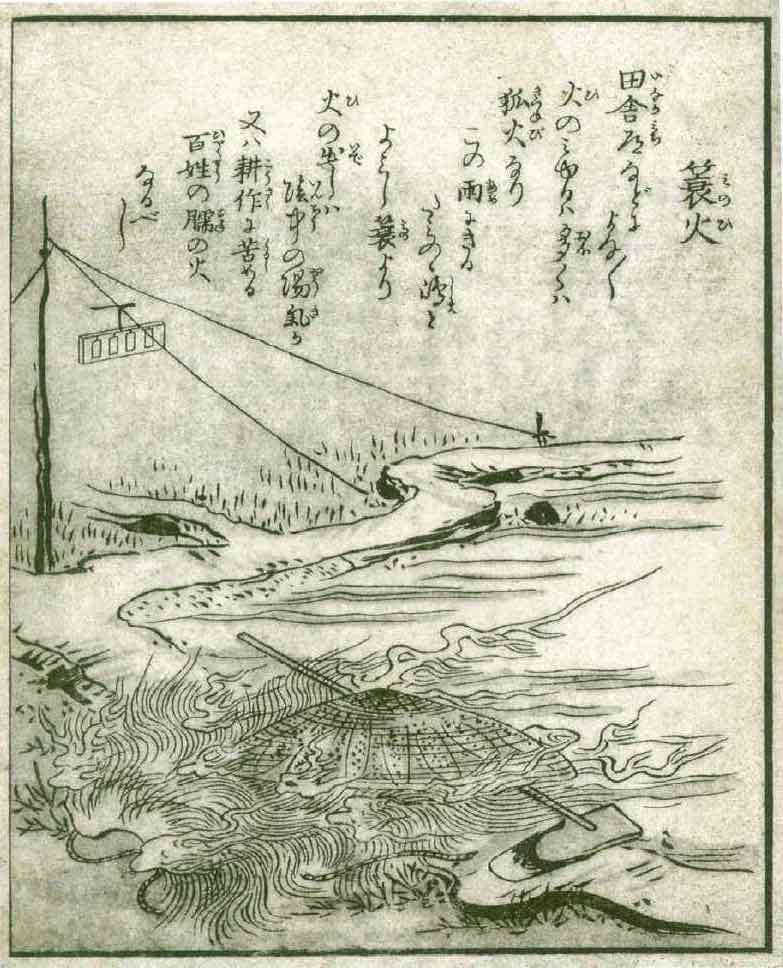 蓑火
田舎道などに
よな〱
火のみゆるハ多くハ
狐火なり
この雨にきる
たみのゝ嶋と
よみし蓑より
火の出しハ
陰中の陽気か
又ハ耕作に苦める
百姓の臑の火
なるべし